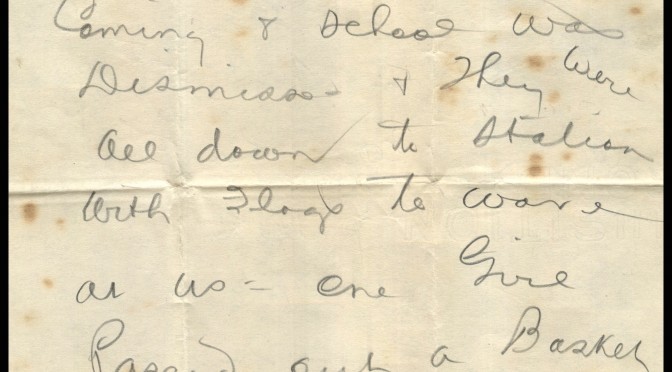 Coming & School was
Dismissed & They were
All down to Station
With Flags to wave
at us - one Girl
Passed out a Basket